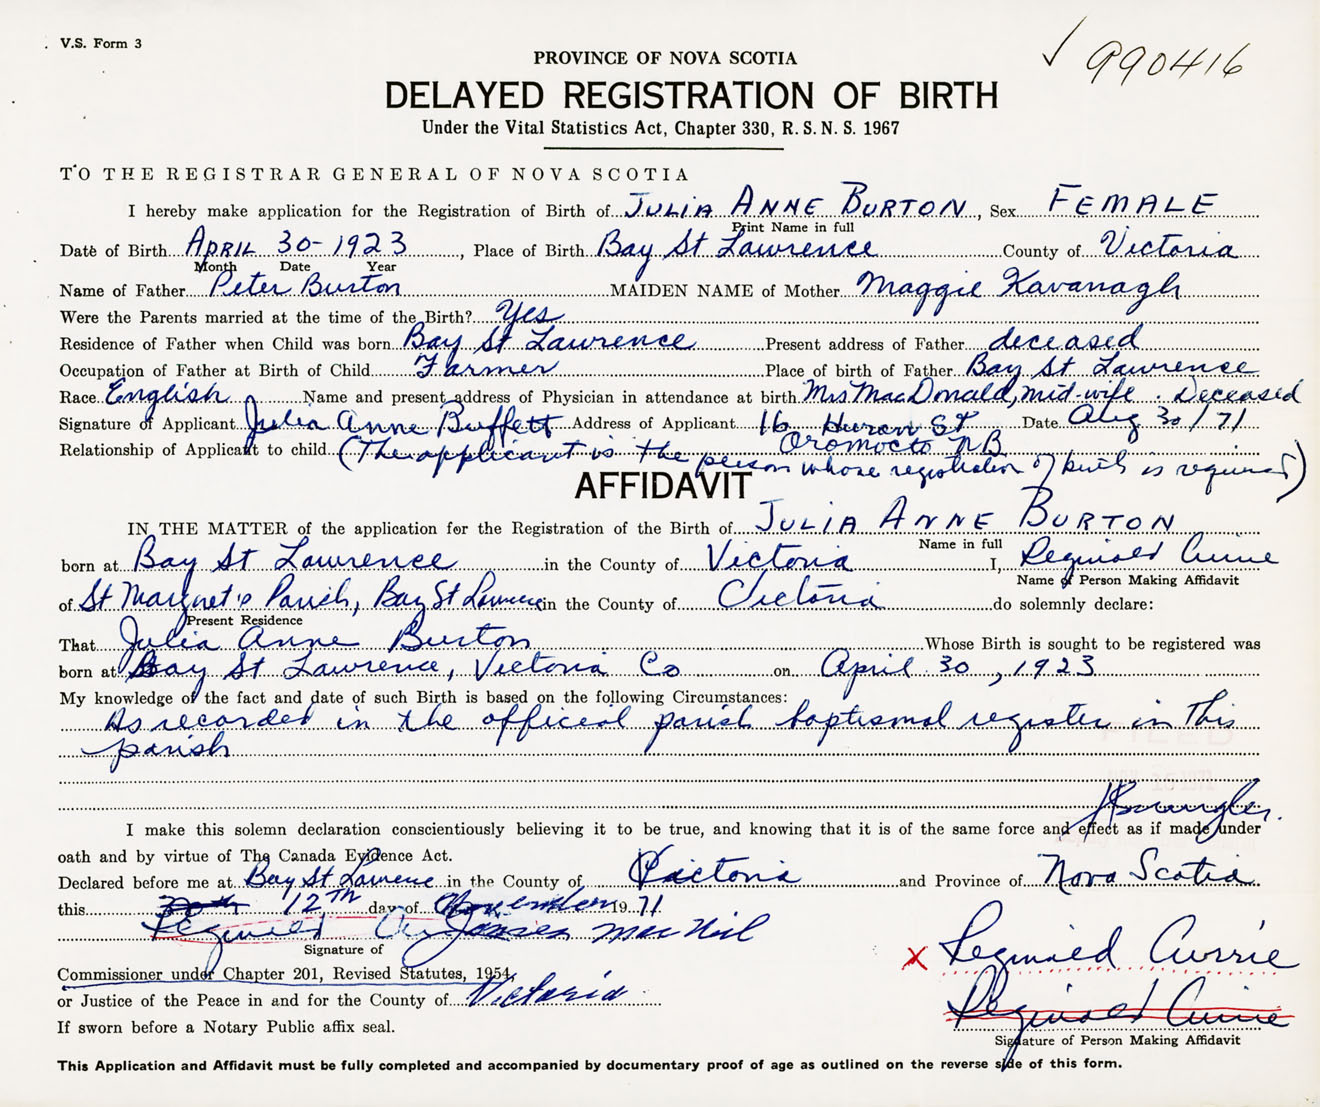 V.S. Form 3
990416
PROVINCE OF NOVA SCOTIA
DELAYED REGISTRATION OF BIRTH
Under the Vital Statistics Act, Chapter 330, R. S. N. S. 1967
TO THE REGISTRAR GENERAL OF NOVA SCOTIA
I hereby make application for the Registration of Birth of JULIA ANNE BURTON, Sex FEMALE
Print Name in full
Date of Birth APRIL 30-1923, Place of Birth Bay St Lawrence County of Victoria
Month Date Year
Name of Father Peter Burton MAIDEN NAME of Mother Maggie Kavanagh
Were the Parents married at the time of the Birth? Yes
Residence of Father when Child was born Bay St Lawrence Present address of Father deceased
Occupation of Father at Birth of Child Farmer Place of birth of Father Bay St Lawrence
Race English Name and present address of Physician in attendance at birth Mrs MacDonald, mid-wife. Deceased
Signature of Applicant Julia Anne Buffett Address of Applicant 16 Huron St Date Aug 30/71
Oromocto NB
Relationship of Applicant to child (The applicant is the person whose registration of birth is required)
AFFIDAVIT
IN THE MATTER of the application for the Registration of the Birth of JULIA ANNE BURTON
Name in full
born at Bay St Lawrence in the County of Victoria I, Reginald Currie
Name of Person Making Affidavit
of St Margaret's Parish, Bay St Lawrence in the County of Victoria do solemnly declare:
Present Residence
That Julia Anne Burton Whose Birth is sought to be registered was
born at Bay St Lawrence, Victoria Co on April 30, 1923
My knowledge of the fact and date of such Birth is based on the following Circumstances:
As recorded in the official parish baptismal register in this
parish
I make this solemn declaration conscientiously believing it to be true, and knowing that it is of the same force and effect as if made under
oath and by virtue of The Canada Evidence Act.
Declared before me at Bay St Lawrence in the County of Victoria and Province of Nova Scotia
this 12TH day of November 1971
Reginald James MacNeil
Signature of
Reginald Currie
Commissioner under Chapter 201, Revised Statutes, 1954,
or Justice of the Peace in and for the County of Victoria
Reginald Currie
If sworn before a Notary Public affix seal.
Signature of Person Making Affidavit
This Application and Affidavit must be fully completed and accompanied by documentary proof of age as outlined on the reverse side of this form.